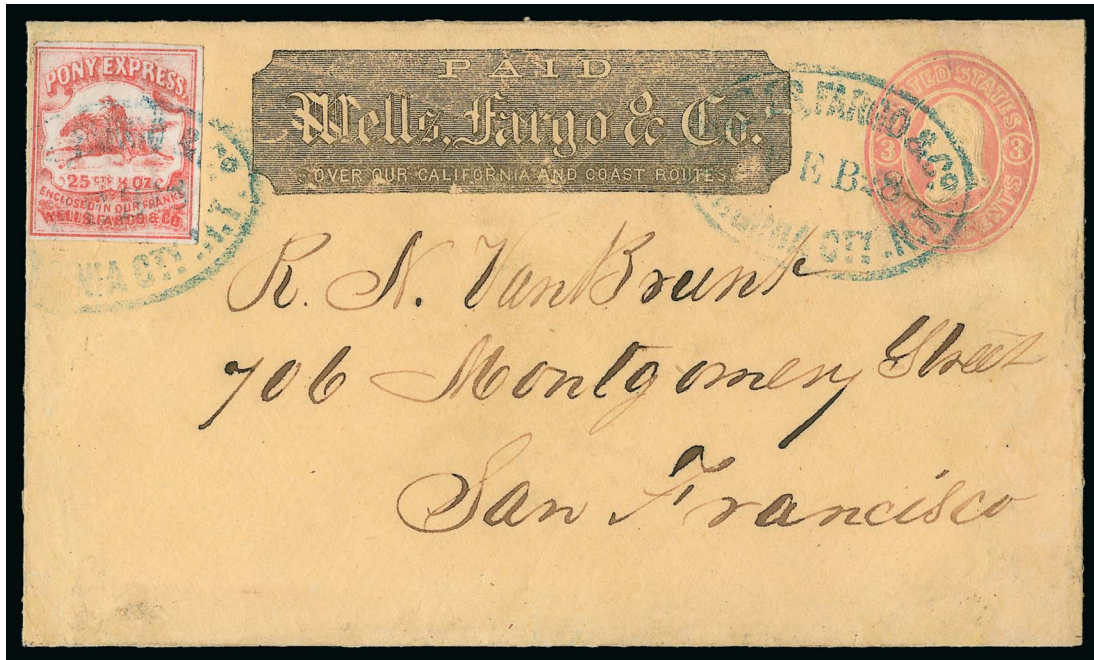 PONY EXPRESS
25 CTS ½ OZ.
ENCLOSED IN OUR FRANKS
WELLS, FARGO & CO
PAID
Wells, Fargo & Co.
OVER OUR CALIFORNIA AND COAST ROUTES.
FARGO & CO
CTY N.T.
UNITED STATES
3 3
CENTS
R. N. VanBrunt
706 Montgomery Street
San Francisco